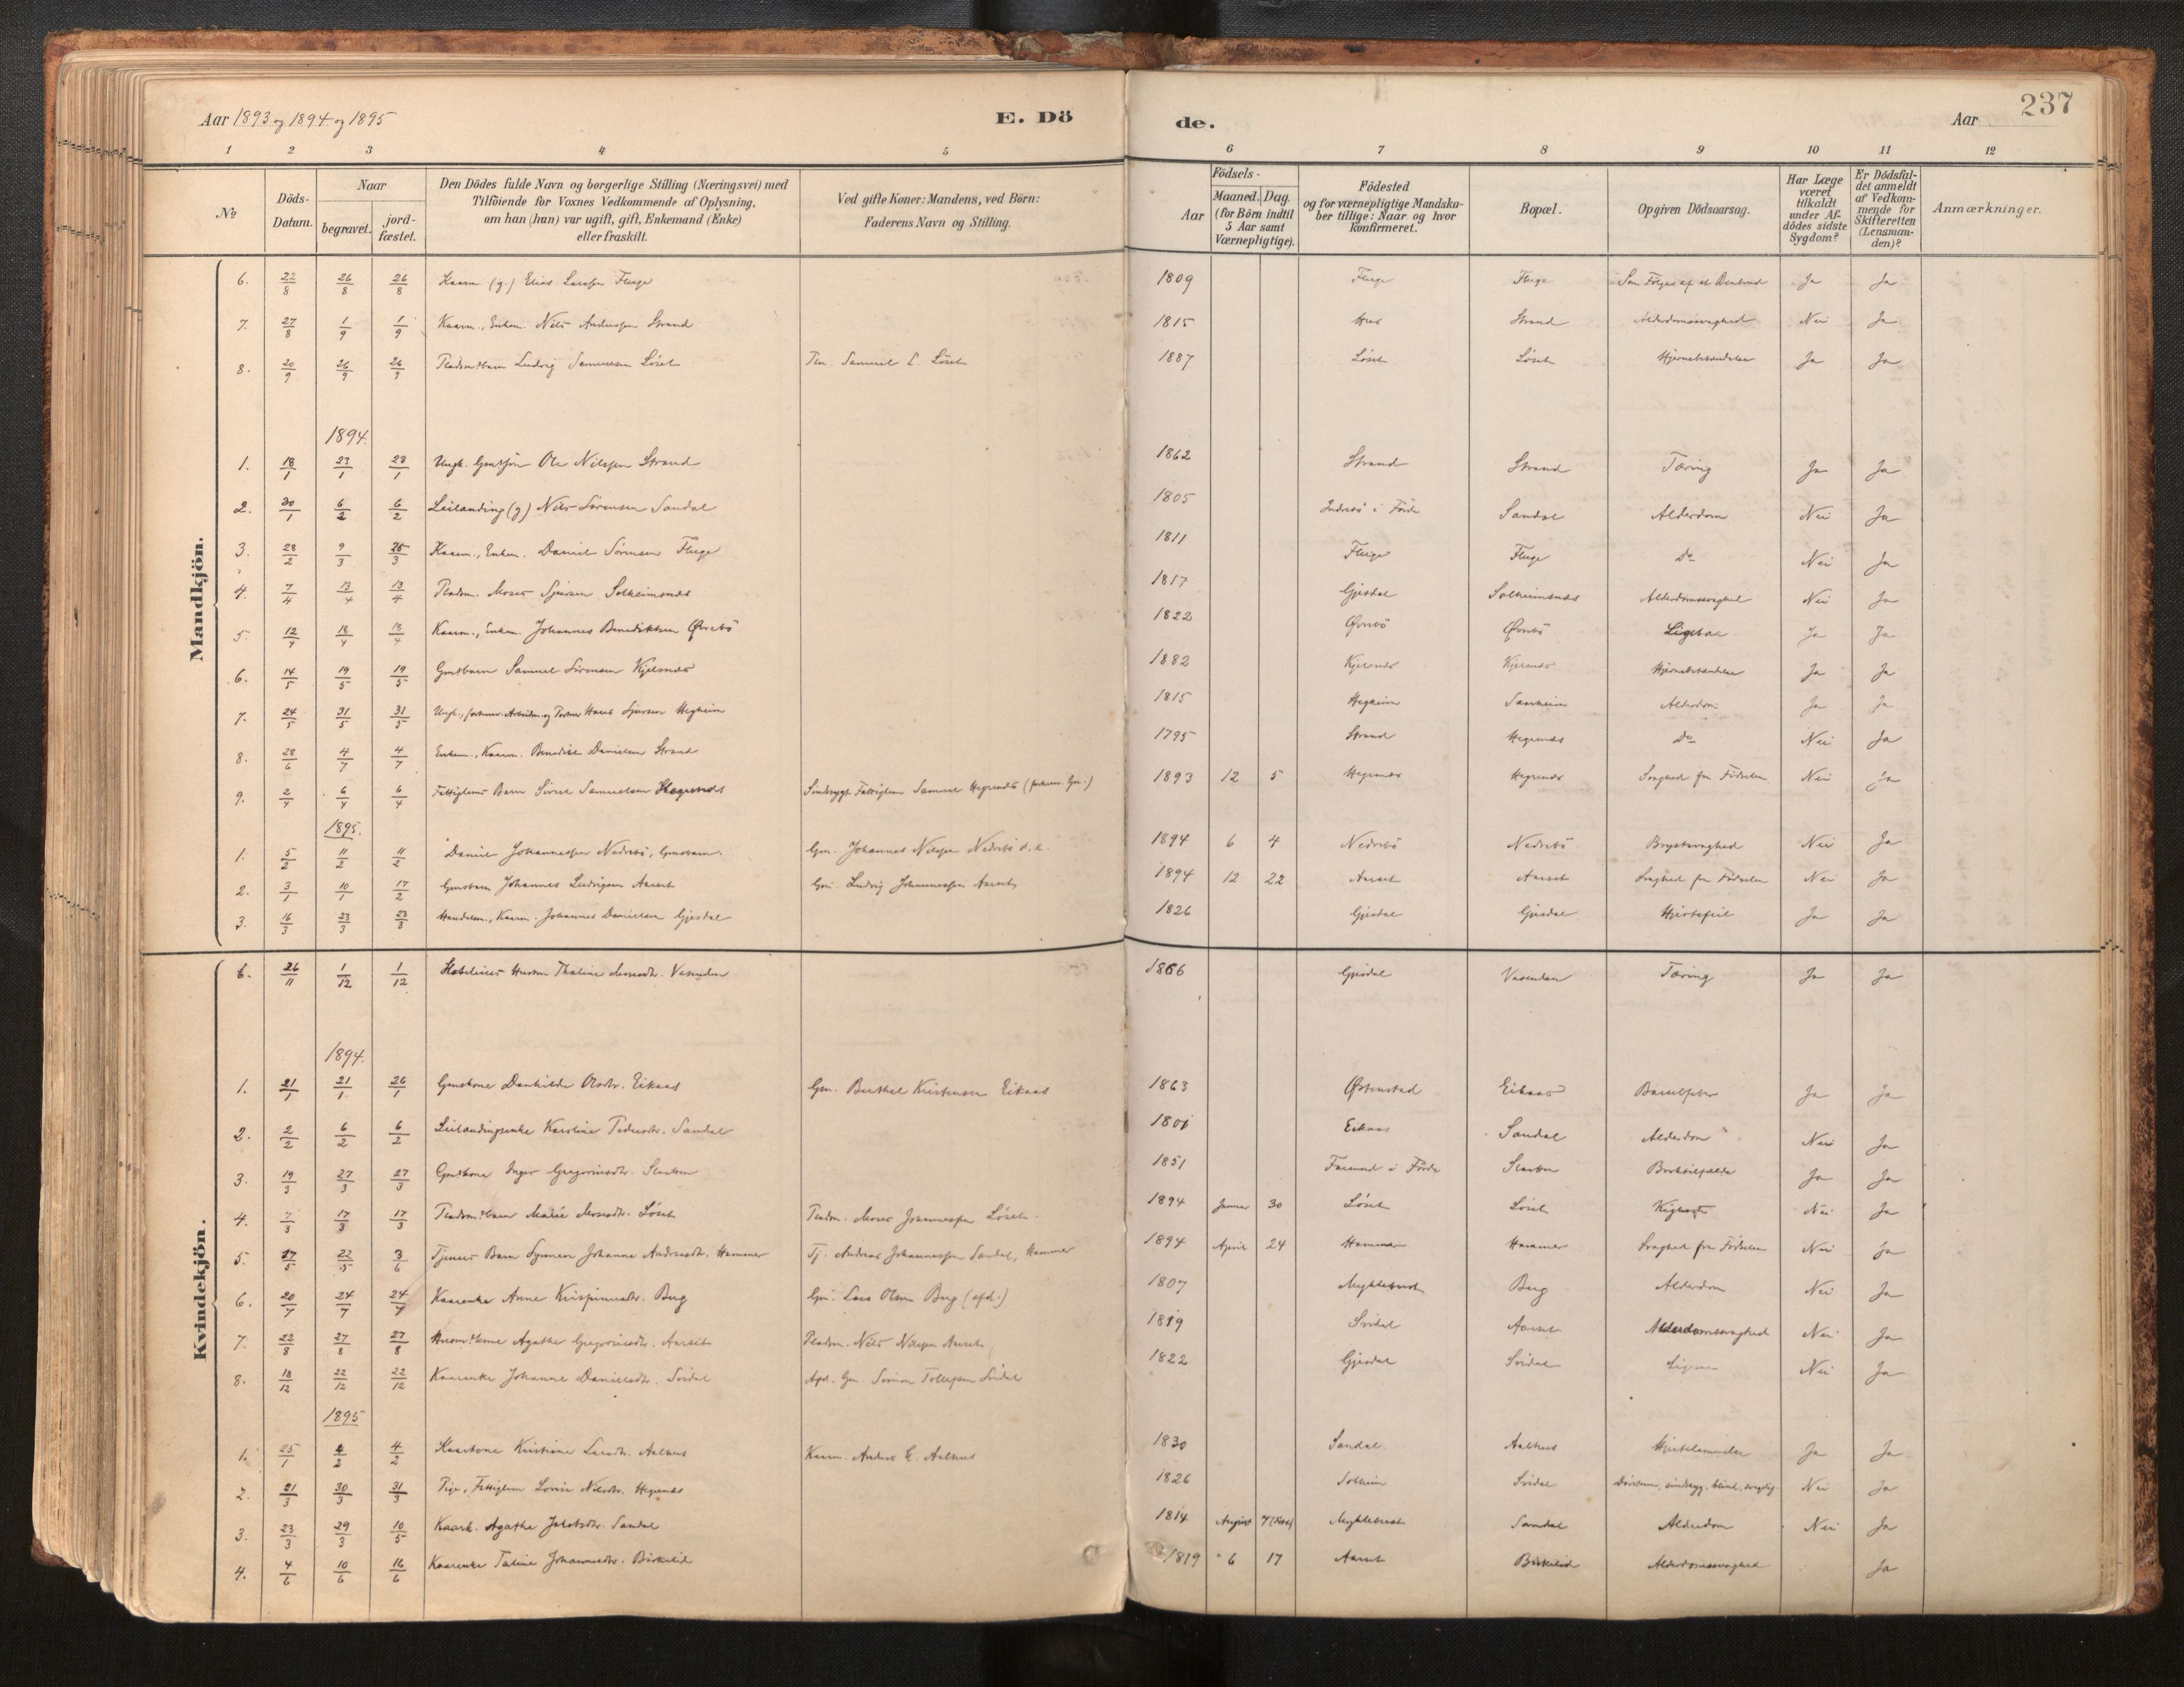 Aar 1893 og 1894 og 1895
E. Dö
de.
Aar
237
1 2 3 4 5 6 7 8 9 10 11 12
No
Döds-Datum.
Naar
begravet.
jord-fæstet.
Den Dödes fulde Navn og borgerlige Stilling (Næringsvei) med
Tilföiende for Voxnes Vedkommende af Oplysning,
om han (hun) var ugift, gift, Enkemand (Enke)
eller fraskilt.
Ved gifte Koner: Mandens, ved Börn:
Faderens Navn og Stilling.
Födsels-
Aar
Maaned. Dag.
(for Börn indtil
5 Aar samt
Værnepligtige).
Födested
og for værnepligtige Mandska-
ber tillige: Naar og hvor
konfirmeret.
Bopæl.
Opgiven Dödsaarsag.
Har Læge
været
tilkaldt
under Af-
dödes sidste
Sygdom?
Er Dödsfal-
det anmeldt
af Vedkom-
mende for
Skifteretten
(Lensman-
den)?
Anmærkninger.
Mandkjön.
6. 22/8 26/8 26/8 Kaarm. (g.) Elias Larssen Fluge 1809 Fluge Fluge Som Følge af et Benbrud Ja Ja
7. 27/8 1/9 1/9 Kaarm., Enkem. Nils Anderssen Strand 1815 Strand Alderdomssvaghed Nei Ja
8. 20/9 26/9 26/9 Pladsm.s barn Ludvig Samuelsen Löset Plm. Samuel L. Löset 1887 Löset Löset Hjernebetændelse Ja Ja
1894.
1. 18/1 23/1 23/1 Ungk. Gmdsön Ole Nilssen Strand 1862 Strand Strand Tæring Ja Ja
2. 30/1 6/2 6/2 Leilænding (g) Nils Sörensen Sandal 1805 Indrebö i Förde Sandal Alderdom Nei Ja
3. 28/2 9/3 25/3 Kaarm., Enkem. Daniel Sörensen Fluge 1811 Fluge Fluge Do Nei Ja
4. 7/4 13/4 13/4 Pladsm. Moses Sjursen Solheimsnæs 1817 Gjesdal Solheimsnæs Alderdomssvaghed Nei Ja
5. 12/4 18/4 18/4 Kaarm., Enkem. Johannes Benediktsen Øvrebö 1822 Øvrebö Øvrebö Ja Ja
6. 14/5 19/5 19/5 Gmdsbarn Samuel Sörensen Kjelsnæs 1882 Kjelsnæs Kjelsnæs Hjernebetændelse Ja Ja
7. 24/5 31/5 31/5 Ungk., forhenv. Arbeider og Tjener Hans Sjursen Hegheim 1815 Hegheim Sanheim Alderdom Ja Ja
8. 28/6 4/7 4/7 Enkem., Kaarm. Benedikt Danielsen Strand 1795 Strand Hegrenæs Do Nei Ja
9. 2/4 6/4 6/4 Fattiglems Barn Sivert Samuelsen Hegrenæs Sindssygt Fattiglem Samuel Hegrenæs (forhenv. Gm.) 1893 12 5 Hegrenæs Hegrenæs Svaghed fra Födselen Nei Ja
1895.
1. 5/2 11/2 11/2 Daniel Johannessen Nedrebö, Gmdsbarn. Gm. Johannes Nilssen Nedrebö 1894 6 4 Nedrebö Nedrebö Brystsvaghed Nei Ja
2. 3/1 10/1 17/2 Gmdsbarn Johannes Ludvigsen Aarset Gm. Ludvig Johannessen Aarset 1894 12 22 Aarset Aarset Svaghed fra Födselen Nei Ja
3. 16/3 23/3 23/3 Handelsm., Kaarm. Johannes Danielsen Gjesdal 1826 Gjesdal Gjesdal Hjertefeil Ja Ja
Kvindekjön.
6. 26/11 1/12 1/12 Hotelieiers Hustru Thaline Mosesdtr. Vasenden 1866 Gjesdal Vasenden Tæring Ja Ja
1894.
1. 21/1 21/1 26/1 Gmdskone Danhilde Olsdtr. Eikaas Gm. Berthel Kristensen Eikaas 1863 Østenstad Eikaas Barselfeber Ja Ja
2. 2/2 6/2 6/2 Leilændingsenke Karoline Pedersdtr. Sandal 1801 Eikaas Sandal Alderdom Nei Ja
3. 19/3 27/3 27/3 Gmdskone Inger Gregoriusdtr. Slaatten 1851 Farsund i Förde Slaatten Ja Ja
4. 7/3 17/3 17/3 Pladsm.s barn Marie Mosesdtr. Löset Pladsm. Moses Johannessen Löset 1894 Januar 30 Löset Löset Kighoste Nei Ja
5. 17/5 22/5 3/6 Tjeners Barn Synneva Johanne Andreasdtr. Hammer Tj. Andreas Johannessen Sandal, Hammer 1894 April 24 Hammer Hammer Svaghed fra Födselen Nei Ja
6. 20/7 24/7 24/7 Kaarenke Anne Krispinusdtr. Berg Gm. Lars Olsen Berg (afd.) 1807 Myklebust Berg Alderdom Nei Ja
7. 22/8 27/8 27/8 Husm.s kone Agathe Gregoriusdtr. Aarset Pladsm. Nils Nilssen Aarset 1819 Svidal Aarset Alderdomssvaghed Nei Ja
8. 18/12 22/12 22/12 Kaarenke Johanne Danielsdtr. Svidal Afd. Gm. Sörine Tollefsen Svidal 1822 Gjesdal Svidal Nei Ja
1895
1. 25/1 4/2 4/2 Kaarkone Kristiane Larsdtr. Aalhus Kaarm. Anders E. Aalhus 1830 Sandal Aalhus Hjertelammelse Ja Ja
2. 21/3 30/3 31/3 Pige, Fattiglem Lovise Nilsdtr. Hegrenæs 1826 Solheim Svidal Nei Ja
3. 23/3 29/3 10/5 Kaark. Agathe Jakobsdtr. Sandal 1814 August 7 Myklebust Sandal Alderdom Nei Ja
4. 4/6 10/6 16/6 Kaarenke Taline Johannesdtr. Birkelid 1819 6 17 Aarset Birkelid Alderdomssvaghed Ja